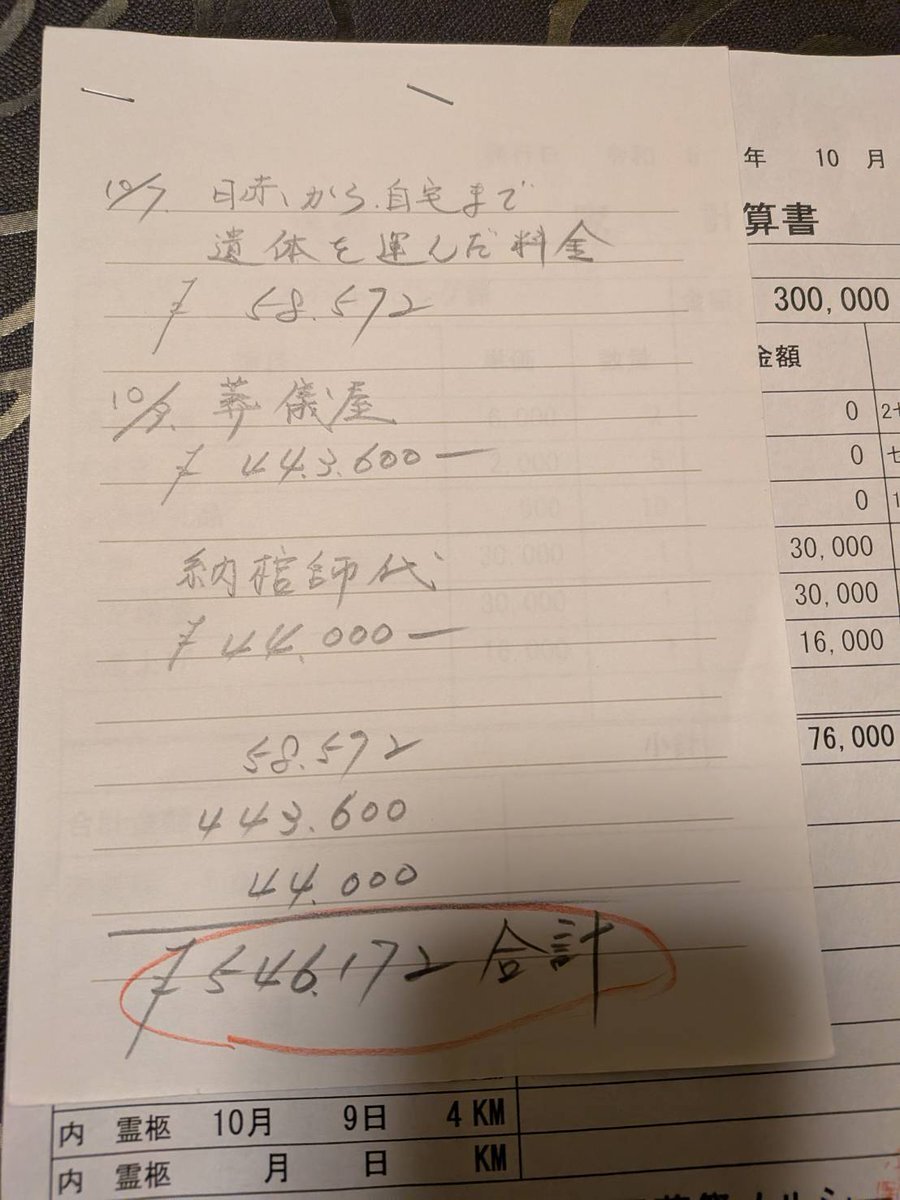 10/7 日赤から自宅まで
遺体を運んだ料金
¥ 58.572
10/9 葬儀屋
¥ 443.600ー
納棺師代
¥ 44.000ー
58.572
443.600
44.000
¥546.172 合計
年 10 月
算書
300,000
金額
0
0
0
30,000
30,000
16,000
76,000
内 霊柩 10月 9日 4 KM
内 霊柩 月 日 KM